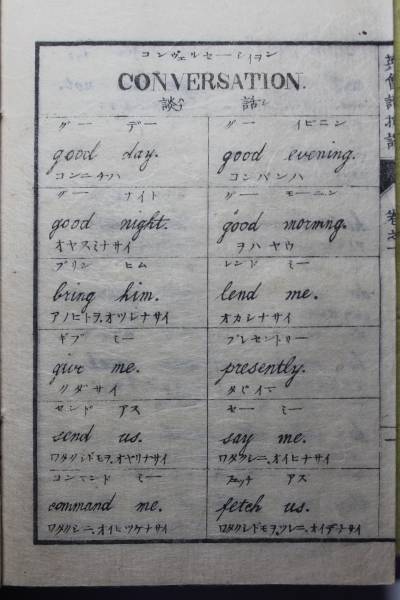 コンヴェルセーシィヲン
CONVERSATION.
談話
グー デー
good day.
コンニチハ
グー イビニン
good evening.
コンバンハ
グー ナイト
good night.
オヤスミナサイ
グー モーニン
good morning.
ヲハヤウ
ブリン ヒム
bring him.
アノヒトヲ、オツレナサイ
レンド ミー
lend me.
オカシナサイ
ギブ ミー
give me.
クダサイ
プレセントリー
presently.
タダイマ
センド アス
send us.
ワタクシドモヲ、オヤリナサイ
セー ミー
say me.
ワタクシニ、オイヒナサイ
コンマンド ミー
command me.
ワタクシニ、オイヒツケナサイ
フェッチ アス
fetch us.
ワタクシドモヲ、ツレニ、オイデナサイ